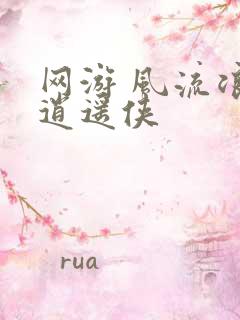 网游风流
逍遥侠
rua